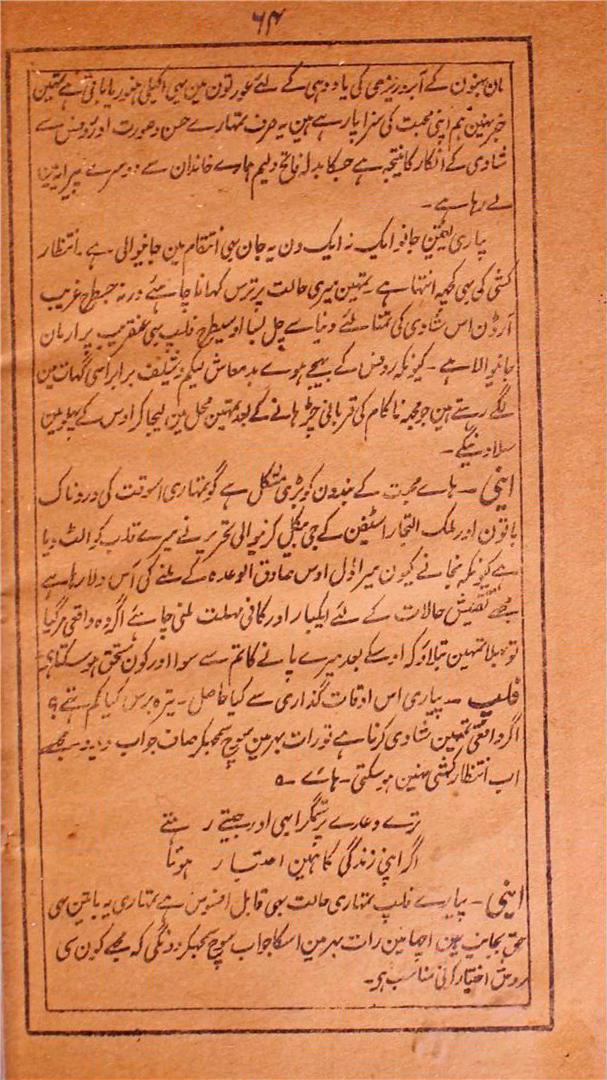 ۶۴
مان بہنون کے آبرو ریزی کی یاد دہی کے لئے عورتون مین یہی اکیلی حضور یا باقی ہے تمھین
خبر نہین تم اپنی محبت کی سزا پا رہے ہین یہ صرف تمہارے حسن و صورت اور رونس سے
شادی کے انکار کا نتیجہ ہے جسکا بدلہ فاتح ولیم ہمارے خاندان سے دوسرے پیرایہ مین
لے رہا ہے ۔
پیاری یقین جانو ایک نہ ایک دن یہ جان بھی انتقام مین جانیوالی ہے ۔ انتظار
کشی کی بھی کچھ انتہا ہے ۔ تمہین میری حالت پر ترس کہانا چاہئے ورنہ جسطرح غریب
آرڈن اس شادی کی تمنا لئے دنیا سے چل بسا اوسیطرح فلپ بھی عنقریب پر ارمان
جانیوالا ہے ۔ کیونکہ رونس کے بھیجے ہوے بدمعاش برابر اسی گہات مین
لگے رہتے ہین جو مجھ ناکام کی قربانی چڑہانے کے بعد تمہین محل مین لیجا کر اوس کے پہلو مین
سلا دینگے ۔
اینی ۔ ہاے محبت کے بندون کو بڑی مشکل ہے گو تمہاری اسوقت کی دردناک
باتون اور ملک التجار اسٹیفن کے جی ہلا کرنیوالی تحریر نے میرے قلب کو الٹ دیا
ہے کیونکہ نجانے کیون میرا دل اوس صادق الوعدہ کے ملنے کی آس دلا رہا ہے
مجھے تفتیش حالات کے لئے ایکبار اور کافی مہلت ملنی چاہئے اگر وہ واقعی مر گیا
تو بھلا تمہین بتلاؤ کہ اوسکے بعد میرے پانے کا تم سے سوا اور کون مستحق ہو سکتا ہی
فلپ ۔ پیاری اس اوقات گذاری سے کیا حاصل ۔ تیرہ برس کیا کم ہے ؟
اگر واقعی تمہین شادی کرنا ہے تو رات بھر مین سوچ سمجھکر صاف جواب دیدو مجھسے
اب انتظار کشی نہین ہو سکتی ۔ ہاے ۔
ترے وعدے پر ستمگر ابھی اور جیتے رہتے
اگر اپنی زندگی کا ہمین اعتبار ہوتا
اینی ۔ پیارے فلپ تمہاری حالت بھی قابل افسوس ہے تمہاری یہ باتین بھی
حق بجانب ہین اچھا مین رات بھر مین اسکا جواب سوچ سمجھکر دونگی کہ مجھے کون سی
روش اختیار کرنی مناسب ہو ۔